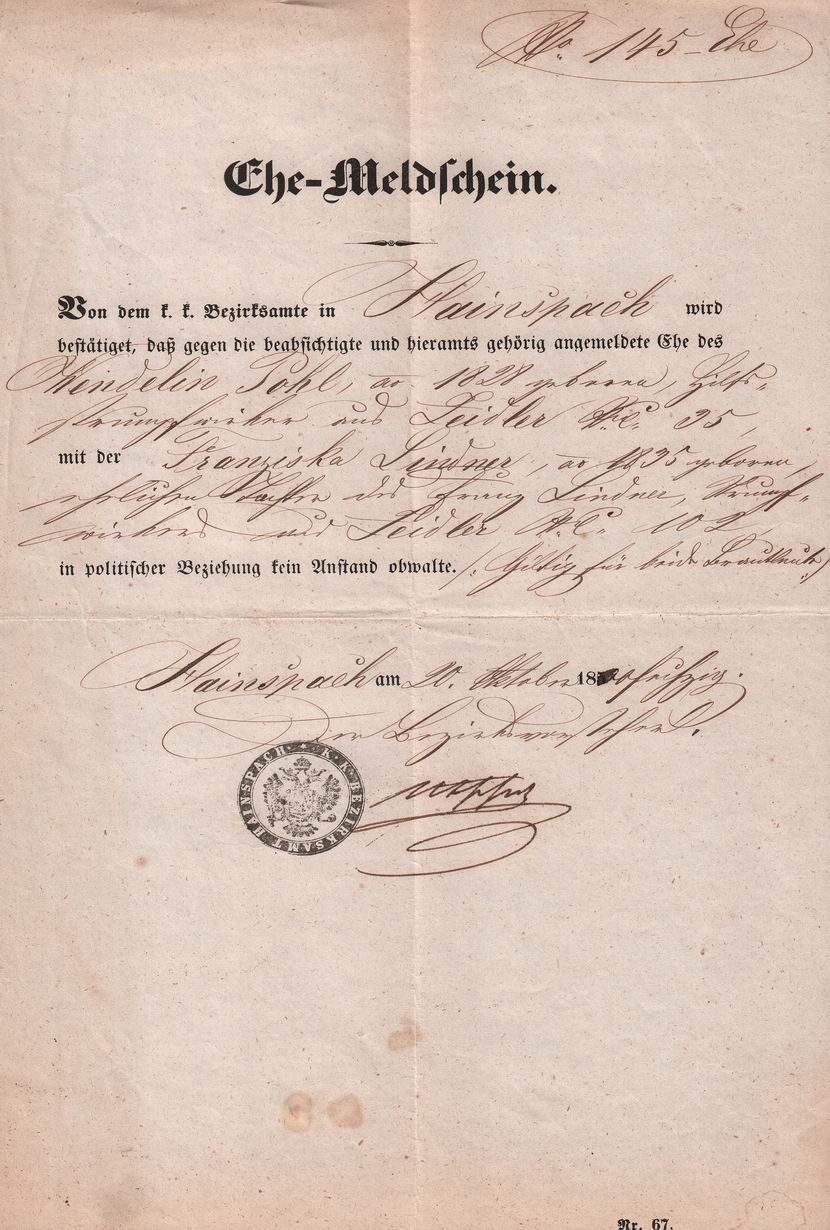 No. 145 - Ehe
Ehe-Meldschein.
Von dem k. k. Bezirksamte in Hainspach wird
bestätiget, daß gegen die beabsichtigte und hieramts gehörig angemeldete Ehe des
Wendelin Pohl, ao 1828 geboren, Hilfs-
strumpfwirker aus Zeidler N.C. 35,
mit der Franziska Lindner, ao 1835 geboren,
ehelichen Tochter des Franz Lindner, Strumpf-
wirkers aus Zeidler N.C. 102,
in politischer Beziehung kein Anstand obwalte. /: Giltig für beide Brautleute :/
Hainspach am 20. Oktober 18 sechzig.
Der Bezirksvorsteher.
HAINSPACH * K. K. BEZIRKSAMT
Nr. 67.